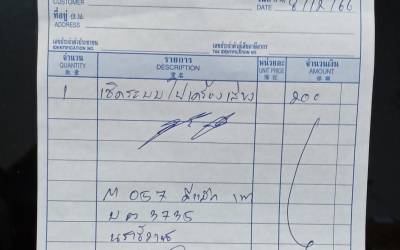 CUSTOMER
ที่อยู่
DATE 8/12/66
เลขประจำตัวประชาชน
IDENTIFICATION NO.
เลขประจำตัวผู้เสียภาษีอากร
TAX IDENTIFICATION NO.
จำนวน รายการ หน่วยละ จำนวนเงิน
QUANTITY DESCRIPTION UNIT PRICE AMOUNT
1 เช็คระบบไฟเครื่องเสียง 200
M 057
บต 3735
นราธิวาส